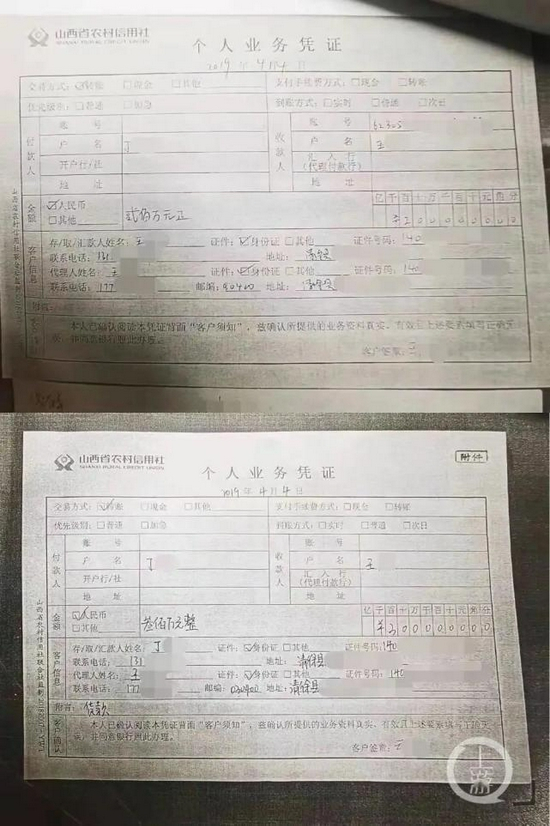 山西省农村信用社
SHANXI RURAL CREDIT UNION
个人业务凭证
2019年4月4日
交易方式：☑转账 □现金 □其他
支付手续费方式：□现金 □转账
优先级别：□普通 □加急
到账方式：□实时 □普通 □次日
付款人
账号
户名 丁
开户行/社
地址
收款人
账号 62305
户名 王
汇入行
(代理付款行)
地址
金额
☑人民币
□其他
贰佰万元正
亿千百十万千百十元角分
¥200000000
客户信息
存/取/汇款人姓名：王 证件：☑身份证 □其他 证件号码：140
联系电话：131 地址：清徐县
代理人姓名：王 证件：☑身份证 □其他 证件号码：140
联系电话：177 邮编： 地址：清徐县
附言：
本人已确认阅读本凭证背面"客户须知"，兹确认所提供的业务资料真实、有效且上述要素填写正确无
误，并同意银行照此办理。
客户签章：王
山西省农村信用社
SHANXI RURAL CREDIT UNION
附件
个人业务凭证
2019年4月4日
交易方式：☑转账 □现金 □其他
支付手续费方式：□现金 □转账
优先级别：□普通 □加急
到账方式：□实时 □普通 □次日
付款人
账号
户名 丁
开户行/社
地址
收款人
账号
户名 王
汇入行
(代理付款行)
地址
金额
☑人民币
□其他
叁佰万元整
亿千百十万千百十元角分
¥300000000
客户信息
存/取/汇款人姓名：丁 证件：☑身份证 □其他 证件号码：140
联系电话：131 地址：清徐县
代理人姓名：王 证件：☑身份证 □其他 证件号码：140
联系电话：177 邮编：030400 地址：清徐县
附言：货款
本人已确认阅读本凭证背面"客户须知"，兹确认所提供的业务资料真实、有效且上述要素填写正确无
误，并同意银行照此办理。
客户签章：王
上游